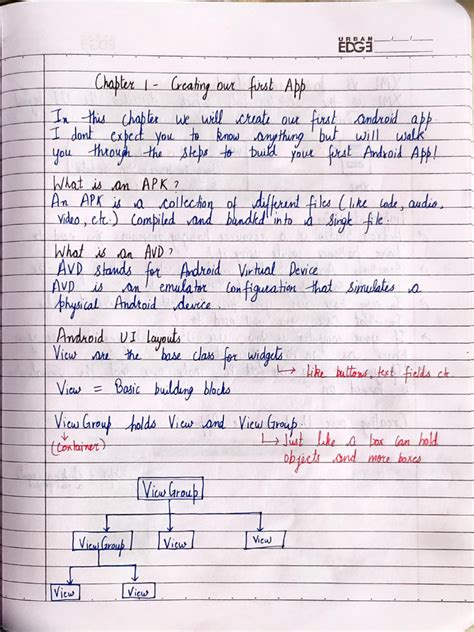 URBAN
EDGE
Chapter 1 - Creating our first App
In this chapter we will create our first android app.
I dont expect you to know anything but will walk
you through the steps to build your first Android App!
What is an APK?
An APK is a collection of different files (like code, audio,
video, etc.) compiled and bundled into a single file.
What is an AVD?
AVD stands for Android Virtual Device
AVD is an emulator configuration that simulates a
physical Android device.
Android UI Layouts
View are the base class for widgets
→ like buttons, text fields etc.
View = Basic building blocks
ViewGroup holds View and ViewGroup.
(container)
→ Just like a box can hold
objects and more boxes
ViewGroup
ViewGroup View View
View View